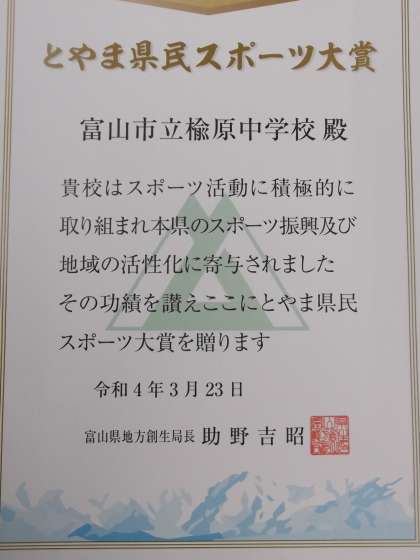 とやま県民スポーツ大賞
富山市立楡原中学校 殿
貴校はスポーツ活動に積極的に
取り組まれ本県のスポーツ振興及び
地域の活性化に寄与されました
その功績を讃えここにとやま県民
スポーツ大賞を贈ります
令和4年3月23日
富山県地方創生局長 助野吉昭